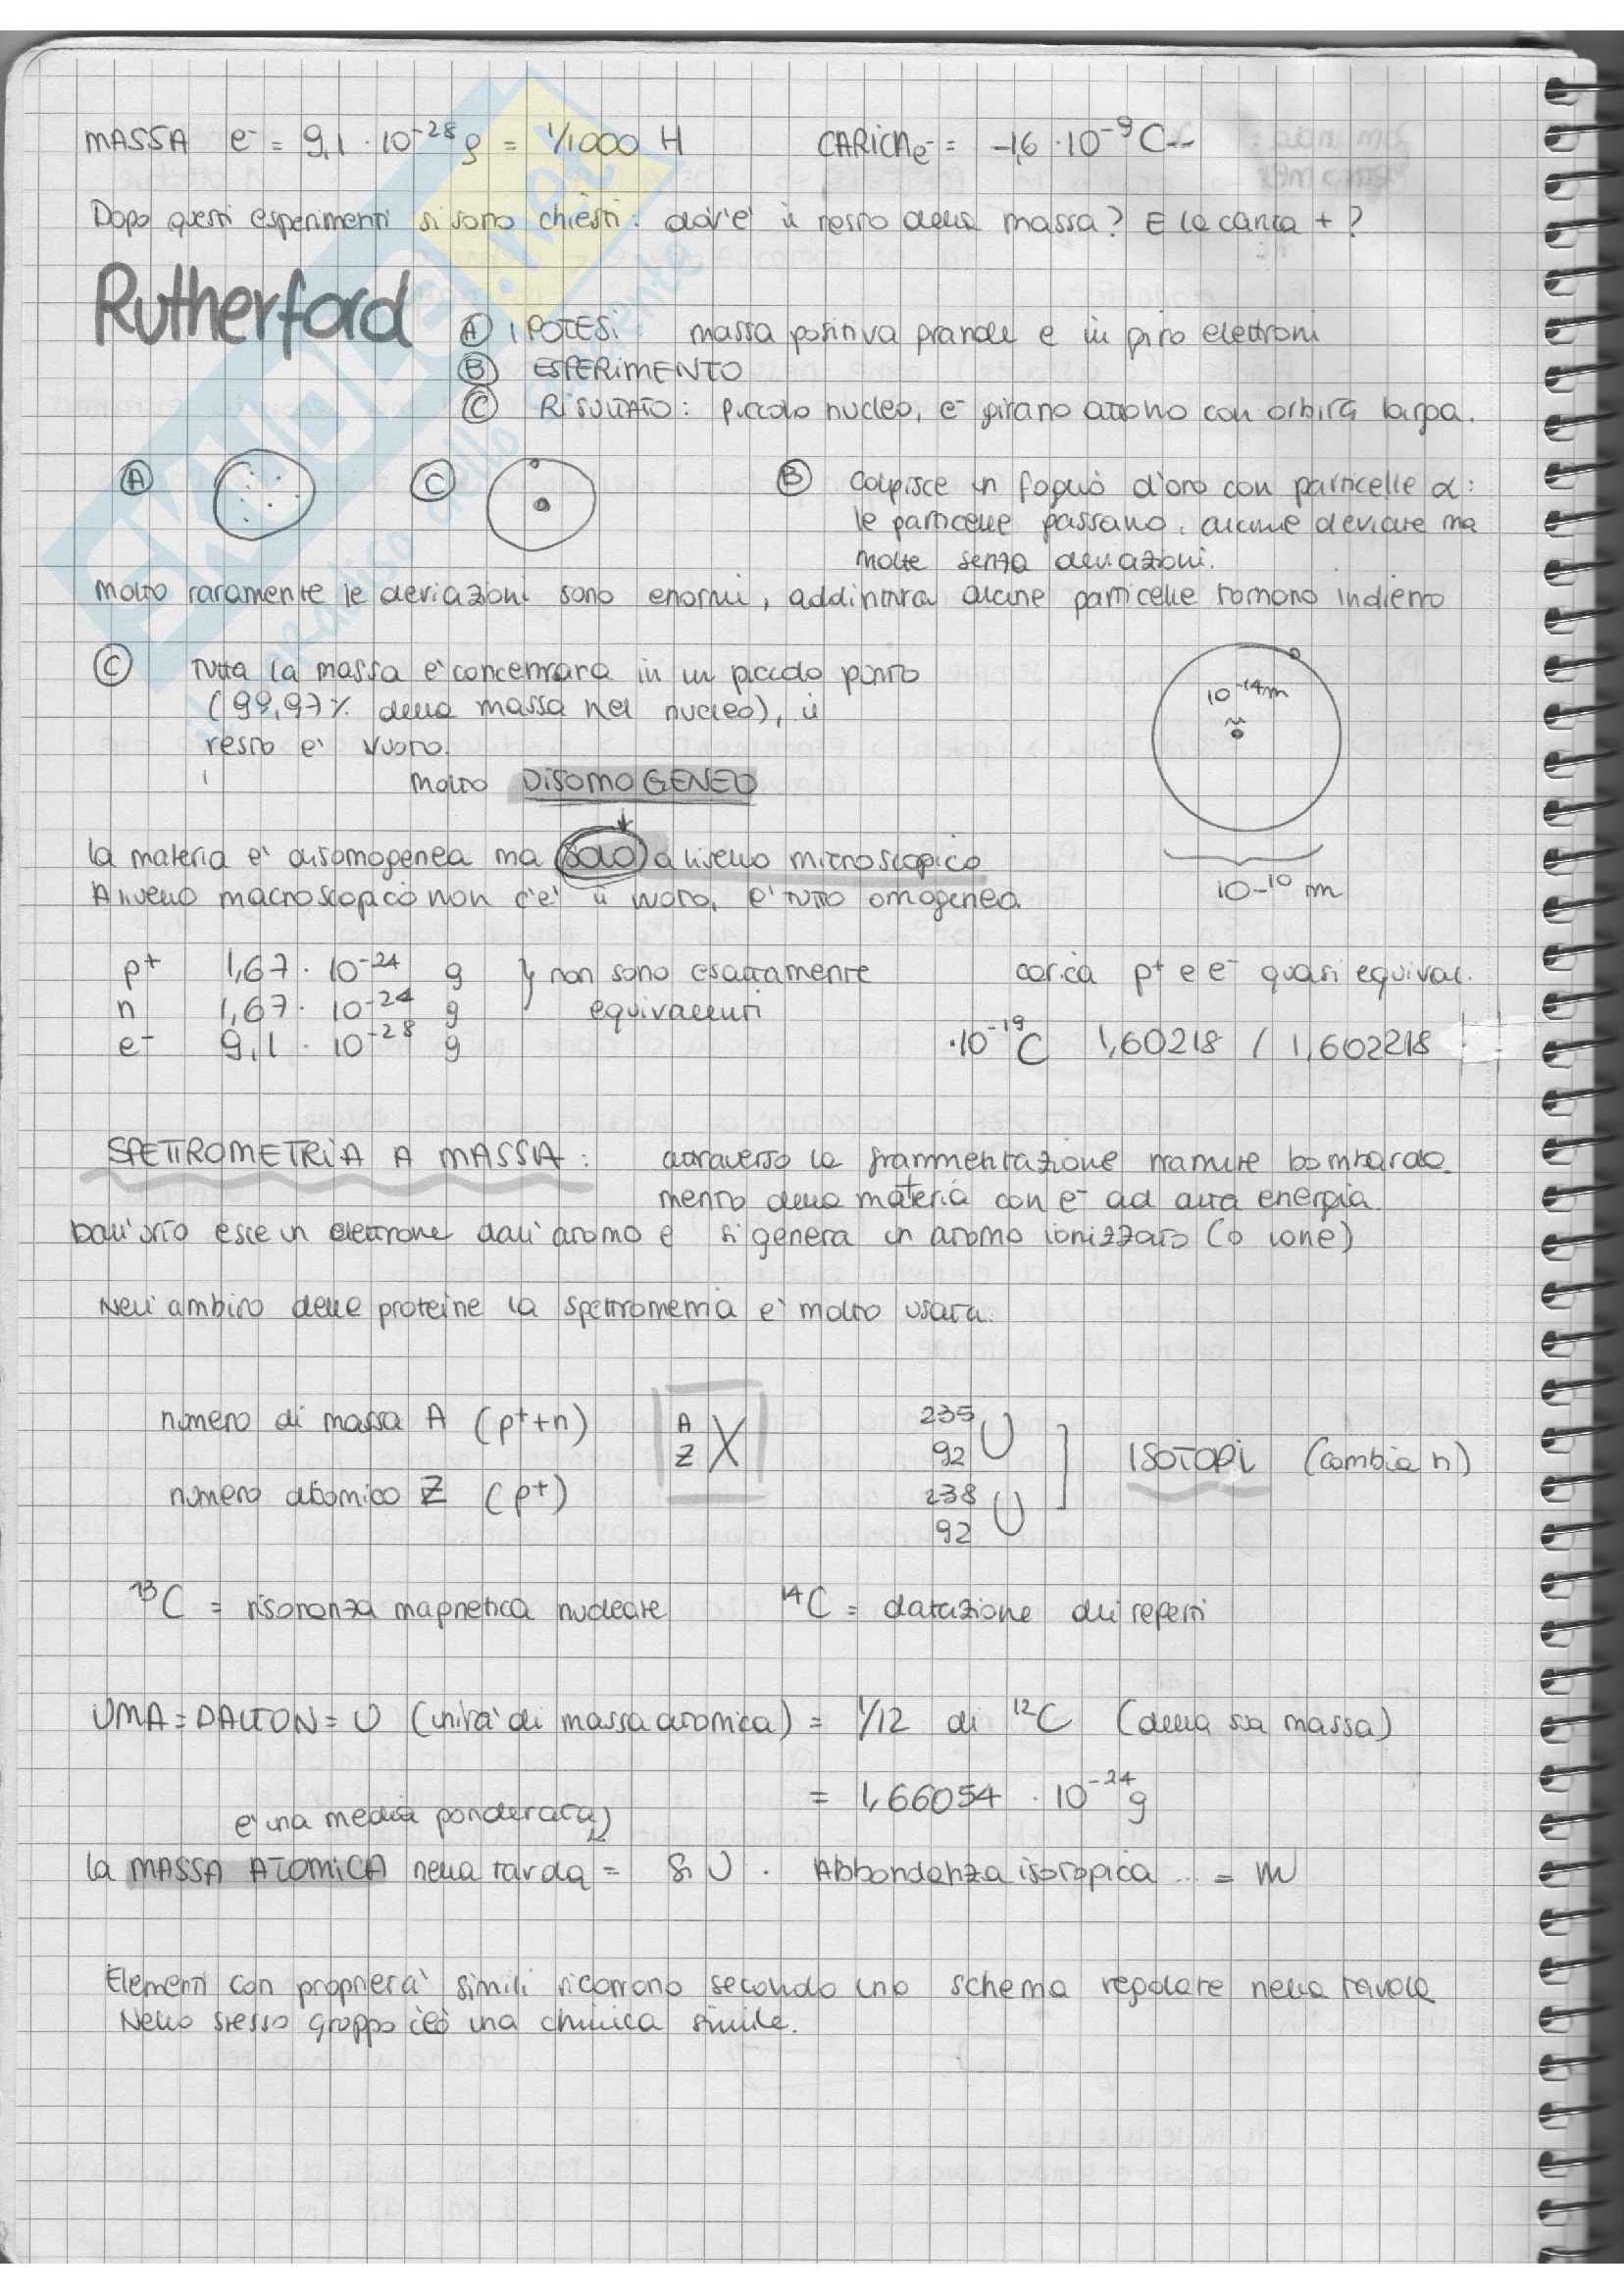 MASSA e⁻ = 9,1 · 10⁻²⁸ g = 1/1000 H CARICA e⁻ = -1,6 · 10⁻⁹ C--
Dopo questi esperimenti si sono chiesti: dov'è il resto della massa? E la carica + ?
Rutherford
Ⓐ IPOTESI: massa positiva grande e in giro elettroni
Ⓑ ESPERIMENTO
Ⓒ RISULTATO: piccolo nucleo, e⁻ girano attorno con orbita larga.
Ⓐ Ⓒ Ⓑ Colpisce un foglio d'oro con particelle α:
le particelle passano, alcune deviate ma
molte senza deviazioni.
Molto raramente le deviazioni sono enormi, addirittura alcune particelle tornano indietro
Ⓒ Tutta la massa è concentrata in un piccolo punto
(99,97% della massa nel nucleo), il
resto è vuoto.
10⁻¹⁴ m
molto DISOMOGENEO
la materia è disomogenea ma solo a livello microscopico
A livello macroscopico non c'è il vuoto, è tutto omogeneo.
10⁻¹⁰ m
p⁺ 1,67 · 10⁻²⁴ g } non sono esattamente carica p⁺ e e⁻ quasi equival.
n 1,67 · 10⁻²⁴ g equivalenti
e⁻ 9,1 · 10⁻²⁸ g ·10⁻¹⁹ C 1,60218 / 1,602218
SPETTROMETRIA A MASSA: attraverso la frammentazione tramite bombarda
mento della materia con e⁻ ad alta energia.
Dall'urto esce un elettrone dall'atomo e si genera un atomo ionizzato (o ione)
Nell'ambito delle proteine la spettrometria è molto usata.
numero di massa A (p⁺+n) A Z X 235 92 U
numero atomico Z (p⁺) 238 92 U ] ISOTOPI (cambia n)
¹³C = risonanza magnetica nucleare ¹⁴C = datazione dei reperti
UMA = DALTON = U (unità di massa atomica) = 1/12 di ¹²C (della sua massa)
= 1,66054 · 10⁻²⁴ g
è una media ponderata
la MASSA ATOMICA nella tavola = U · Abbondanza isotopica ... = m
Elementi con proprietà simili ricorrono secondo uno schema regolare nella tavola
Nello stesso gruppo c'è una chimica simile.